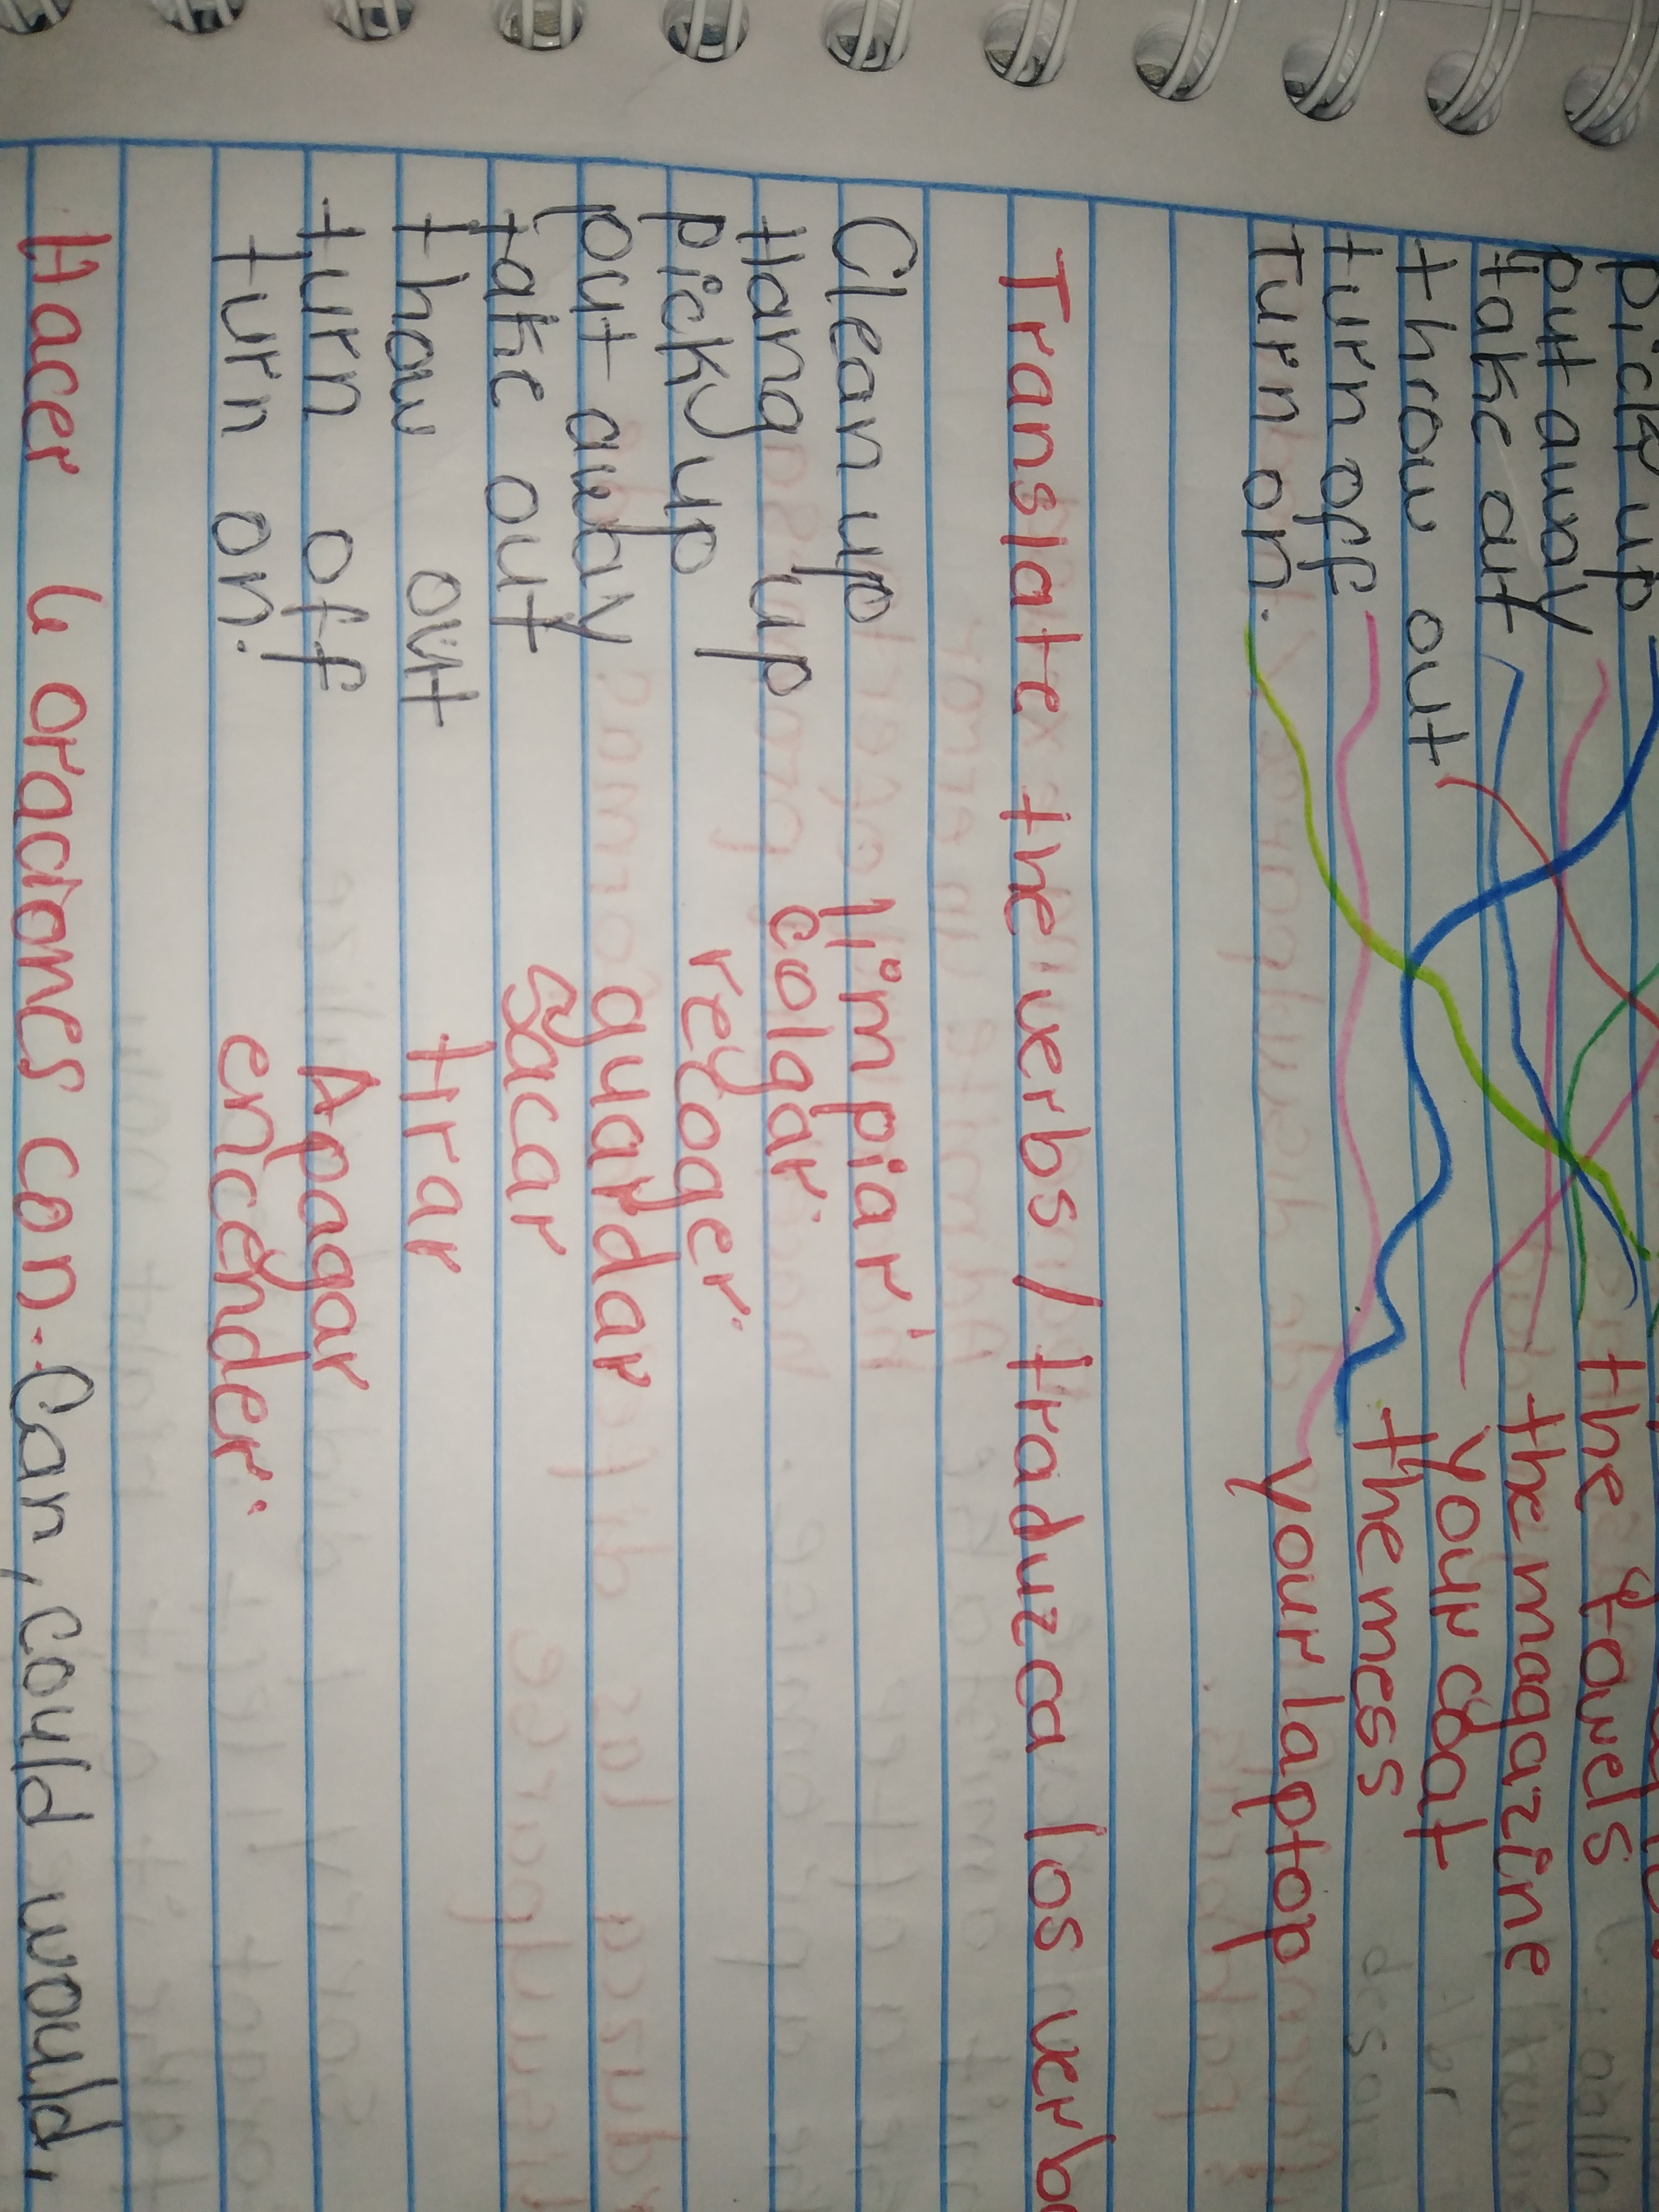 pick up
put away
take out the towels
throw out the magazine
turn off your coat
turn on. the mess
your laptop
Translate the verbs / traduzca los
Clean up limpiar
Hang up colgar
picky up recoger.
put away guardar
take out sacar
thow out tirar
turn off Apagar
turn on. encender.
Hacer 4 oraciones con. Can, could would,